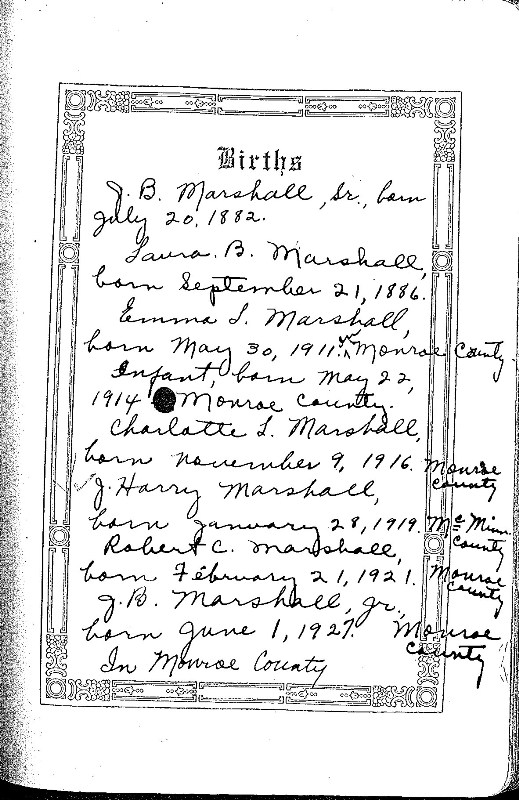 Births
J. B. Marshall, Sr., born
July 20, 1882.
Laura B. Marshall,
born September 21, 1886.
Emma I. Marshall,
born May 30, 1911. in Monroe County.
Infant, born May 22,
1914 Monroe County.
Charlotte L. Marshall,
born November 9, 1916. Monroe
County
J. Harry Marshall,
born January 28, 1919. Mc Minn
County
Robert C. Marshall,
born February 21, 1921. Monroe
County
J. B. Marshall, Jr.,
born June 1, 1927. Monroe
County
In Monroe County